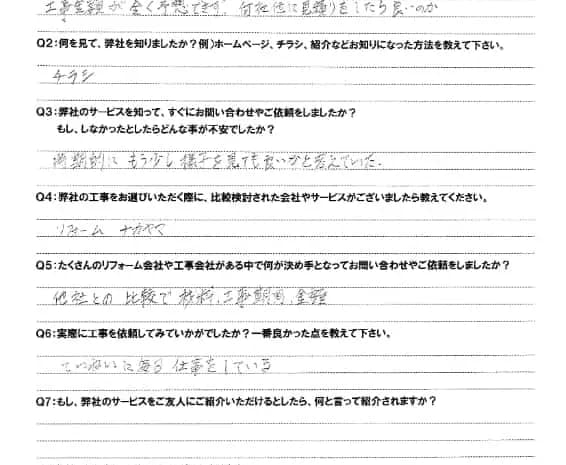 工事金額が全く予想できず、何社位に見積りをしたら良いのか
Q2：何を見て、弊社を知りましたか？例）ホームページ、チラシ、紹介などお知りになった方法を教えて下さい。
チラシ
Q3：弊社のサービスを知って、すぐにお問い合わせやご依頼をしましたか？
もし、しなかったとしたらどんな事が不安でしたか？
時期的に もう少し様子を見ても良いかと考えていた。
Q4：弊社の工事をお選びいただく際に、比較検討された会社やサービスがございましたら教えてください。
リフォーム ナカヤマ
Q5：たくさんのリフォーム会社や工事会社がある中で何が決め手となってお問い合わせやご依頼をしましたか？
他社との 比較で 材料、工事期間、金額
Q6：実際に工事を依頼してみていかがでしたか？一番良かった点を教えて下さい。
ていねいに 仕事をしている
Q7：もし、弊社のサービスをご友人にご紹介いただけるとしたら、何と言って紹介されますか？